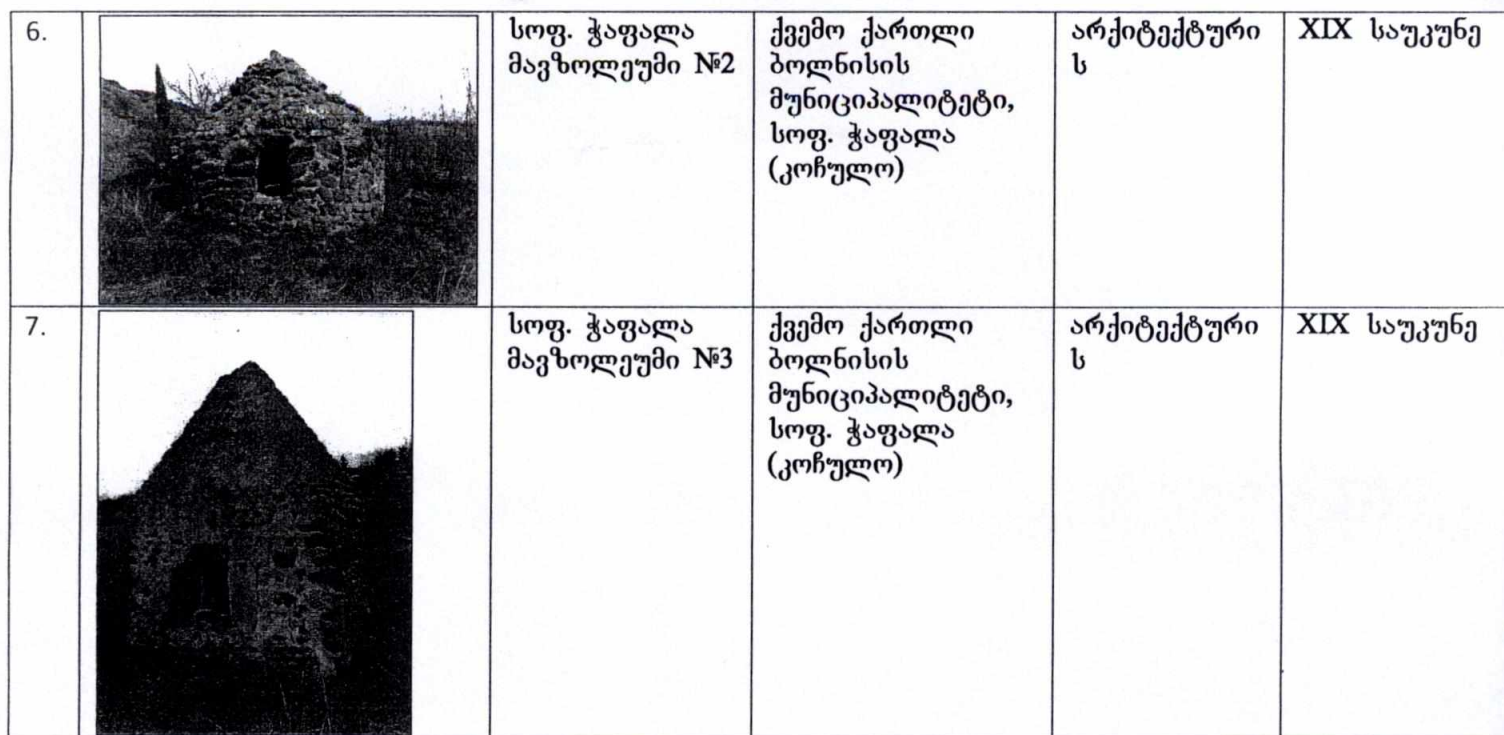 6.
სოფ. ჭაფალა
მავზოლეუმი №2
ქვემო ქართლი
ბოლნისის
მუნიციპალიტეტი,
სოფ. ჭაფალა
(კოჩულო)
არქიტექტური
ს
XIX საუკუნე
7.
სოფ. ჭაფალა
მავზოლეუმი №3
ქვემო ქართლი
ბოლნისის
მუნიციპალიტეტი,
სოფ. ჭაფალა
(კოჩულო)
არქიტექტური
ს
XIX საუკუნე